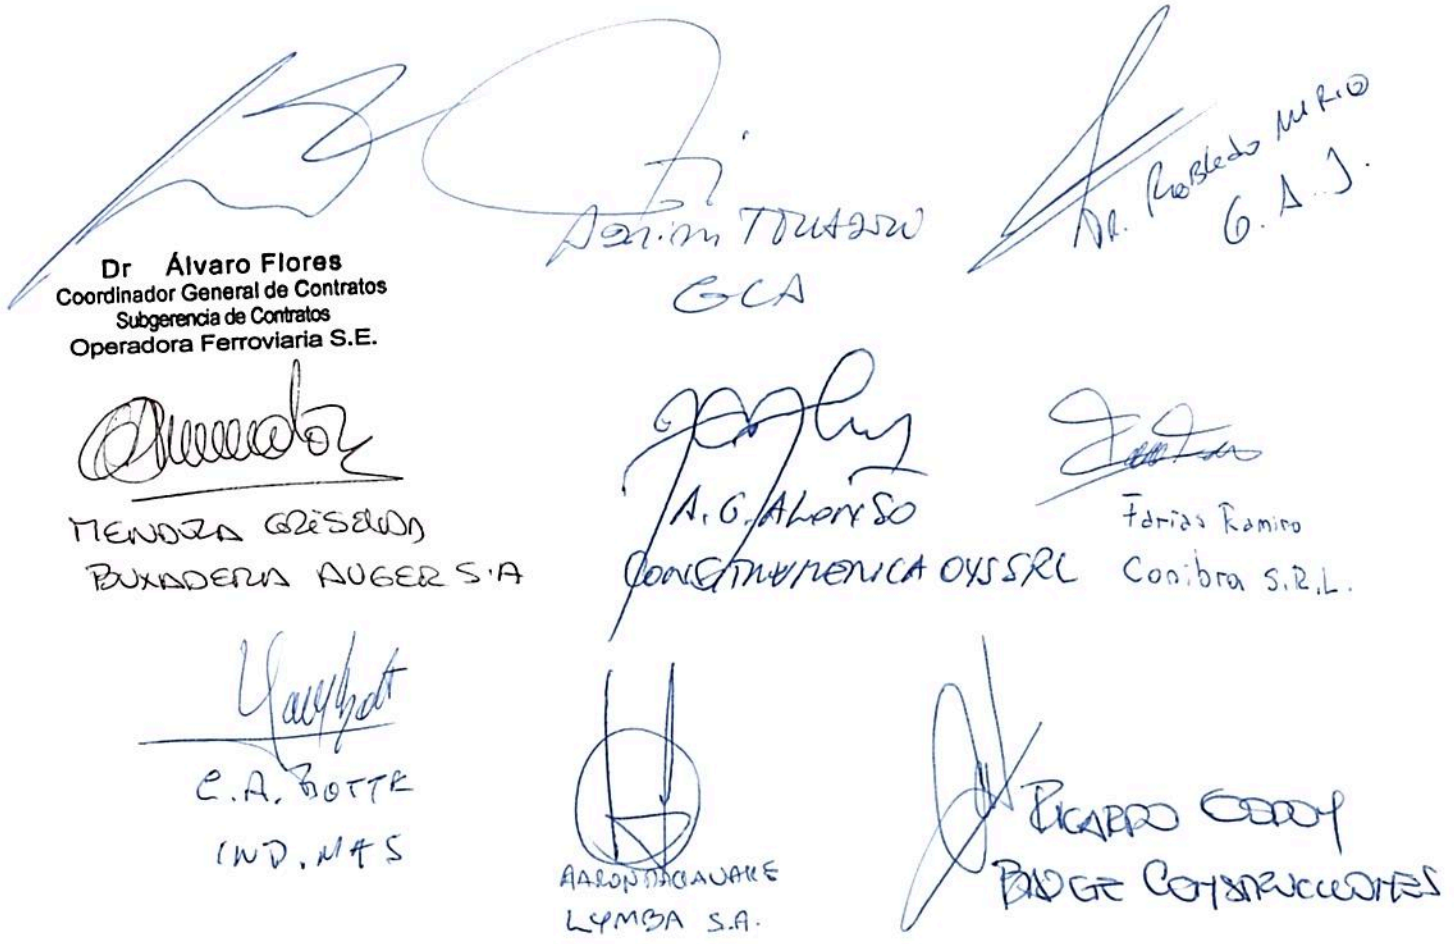 Dr Álvaro Flores
Coordinador General de Contratos
Subgerencia de Contratos
Operadora Ferroviaria S.E.
GCA
DR. Robledo
G. A. J.
MENDOZA GRISELDA
BUXADERA AUGER S.A
A. G. ALONSO
OYSSRL
Farias Ramiro
Conibra S.R.L.
C. A. BOTTE
IND. MAS
AARON
LYMBA S.A.
RICARDO GODOY
CONSTRUCCIONES